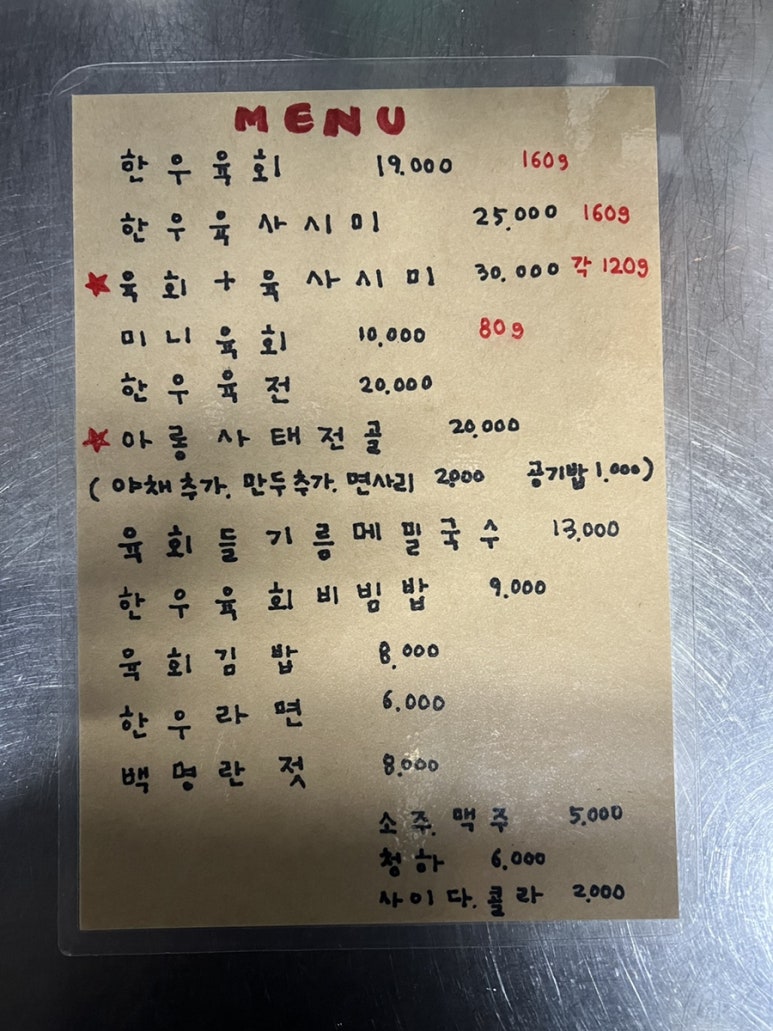 MENU
한우육회 19.000 160g
한우육사시미 25.000 160g
★육회+육사시미 30.000 각 120g
미니육회 10.000 80g
한우육전 20.000
★아롱사태전골 20.000
(야채추가. 만두추가. 면사리 2.000 공기밥 1.000)
육회들기름메밀국수 13.000
한우육회비빔밥 9.000
육회김밥 8.000
한우라면 6.000
백명란젓 8.000
소주. 맥주 5.000
청하 6.000
사이다. 콜라 2.000